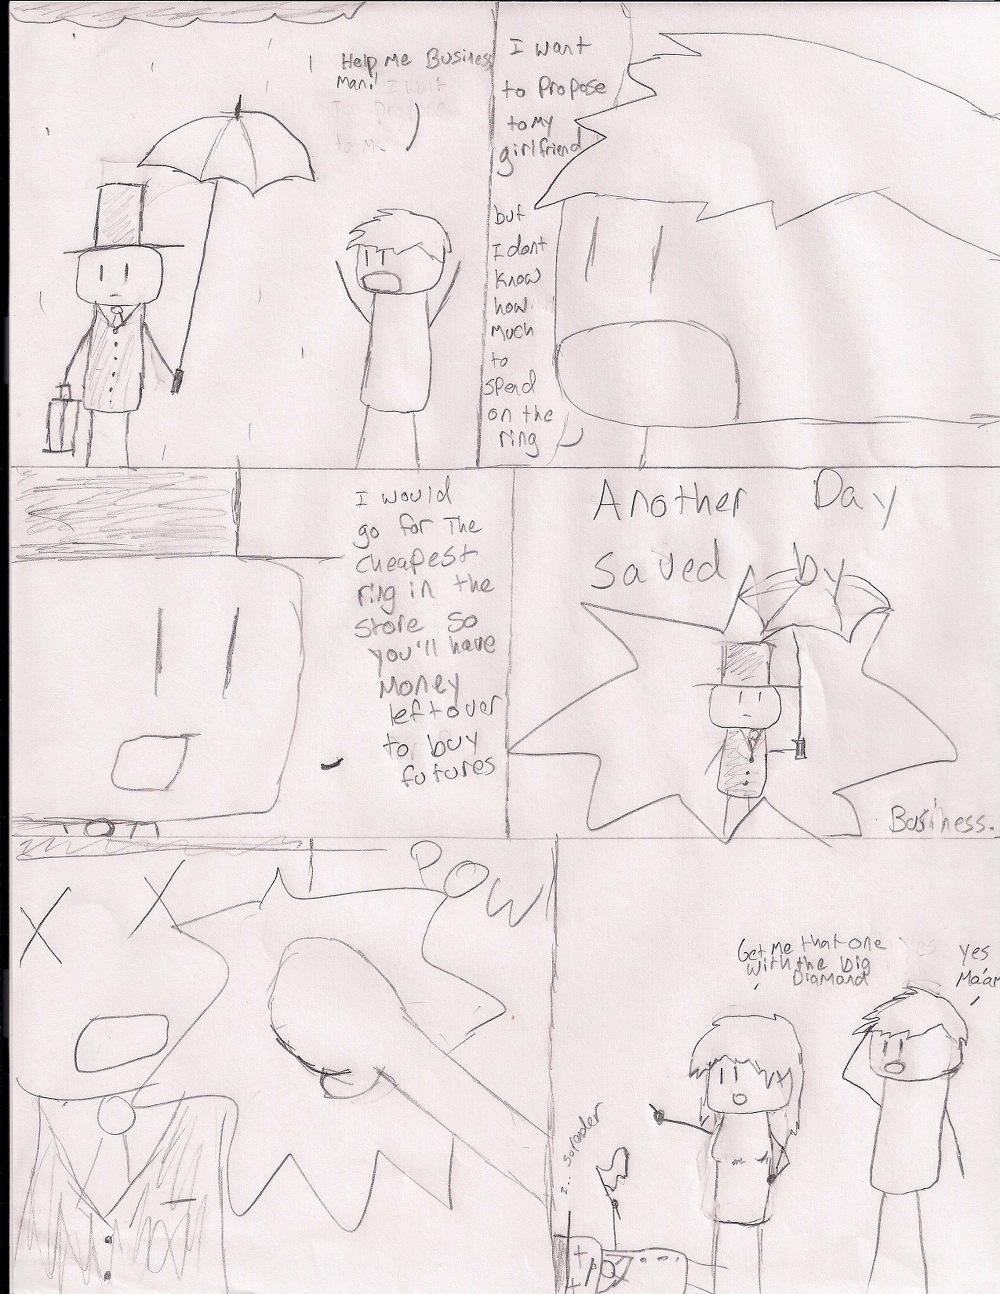 Help Me Business
Man!
I want
to propose
to my
girlfriend
but
I dont
know
how
much
to
spend
on the
ring
I would
go for The
cheapest
ring in the
store so
you'll have
Money
leftover
to buy
futures
Another Day
saved by
Business.
POW
Get Me that one
with the big
Diamond
yes
Ma'am
I.. surender